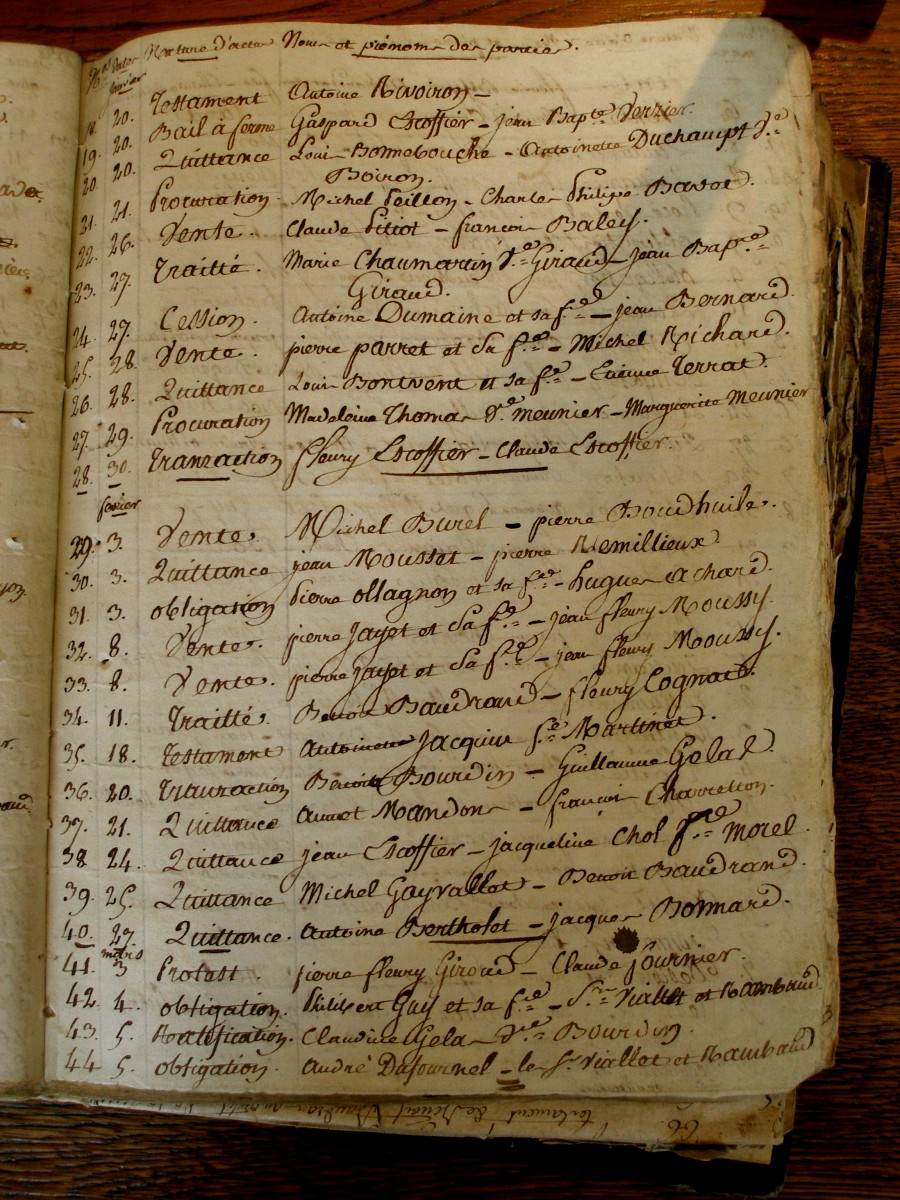 Nature d'actes Noms et prénoms des parties.
janvier
18. 20. Testament Antoine Rivoiron
19. 20. Bail à ferme Gaspard Escoffier - jean Bapte. Verrier.
20. 20. Quittance Louis Bonnebouche - Antoinette Duchampt Ve.
Boiron.
21. 21. Procuration Michel Peillon - Charles Philipe Basset.
22. 26. Vente. Claude Pitiot - françois Baley.
23. 27. Traitté. Marie Chaumartin Ve. Giraud - jean Bapte.
Giraud.
24. 27. Cession. Antoine Dumaine et sa fe. - jean Bernard.
25. 28. Vente. pierre parret et Sa fe. - Michel Richard.
26. 28. Quittance Louis Bontvent et sa fe. - Etienne Terrat.
27. 29. Procuration Madeleine Thomas Ve. meunier - Marguerite meunier
28. 30. Transaction fleury Escoffier - Claude Escoffier.
fevrier
29. 3. Vente. Michel Burel - pierre Boudhuile.
30. 3. Quittance jean Mousset - pierre Remillieux.
31. 3. obligation Pierre ollagnon et sa fe. - hugues achard.
32. 8. Vente. pierre jayet et Sa fe. - jean fleury Moussy.
33. 8. Vente. pierre jayet et Sa fe. - jean fleury Moussy.
34. 11. Traitté. Benoit Baudrand - fleury Cognat.
35. 18. Testament antoinette jacquier fe. Martinet.
36. 20. Transaction Benoite Bourdin - Guillaume Gelas.
37. 21. Quittance annet Mandon - françois Charreton.
38 24. Quittance jean Escoffier - jacqueline Chol fe. morel.
39. 25. Quittance Michel Gayvallet - Benoit Baudrand.
40. 27. Quittance. antoine Bertholet - jacques Bonnard.
mars
41. 3 Protest. pierre fleury Giroud - Claude fournier.
42. 4. obligation. Philipert Guy et sa fe. - Srs. Viallet et Rambaud
43. 5. Ratification. Claudine Gelas Ve. Bourdin.
44 5. obligation. André Dufournel - le Sr. Viallet et Rambaud
testament de Benoit